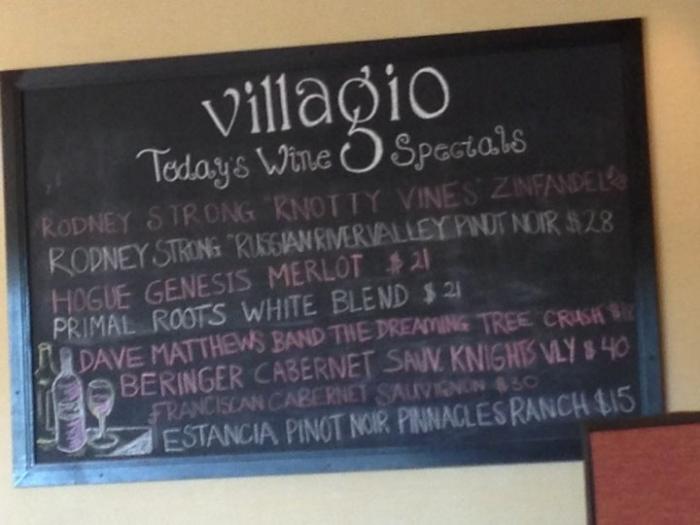 villagio
Today's Wine Specials
RODNEY STRONG "KNOTTY VINES" ZINFANDEL
RODNEY STRONG "RUSSIAN RIVER VALLEY PINOT NOIR $28
HOGUE GENESIS MERLOT $21
PRIMAL ROOTS WHITE BLEND $21
DAVE MATTHEWS BAND THE DREAMING TREE CRUSH
BERINGER CABERNET SAUV. KNIGHTS VLY $40
FRANCISCAN CABERNET SAUVIGNON $30
ESTANCIA PINOT NOIR PINNACLES RANCH $15